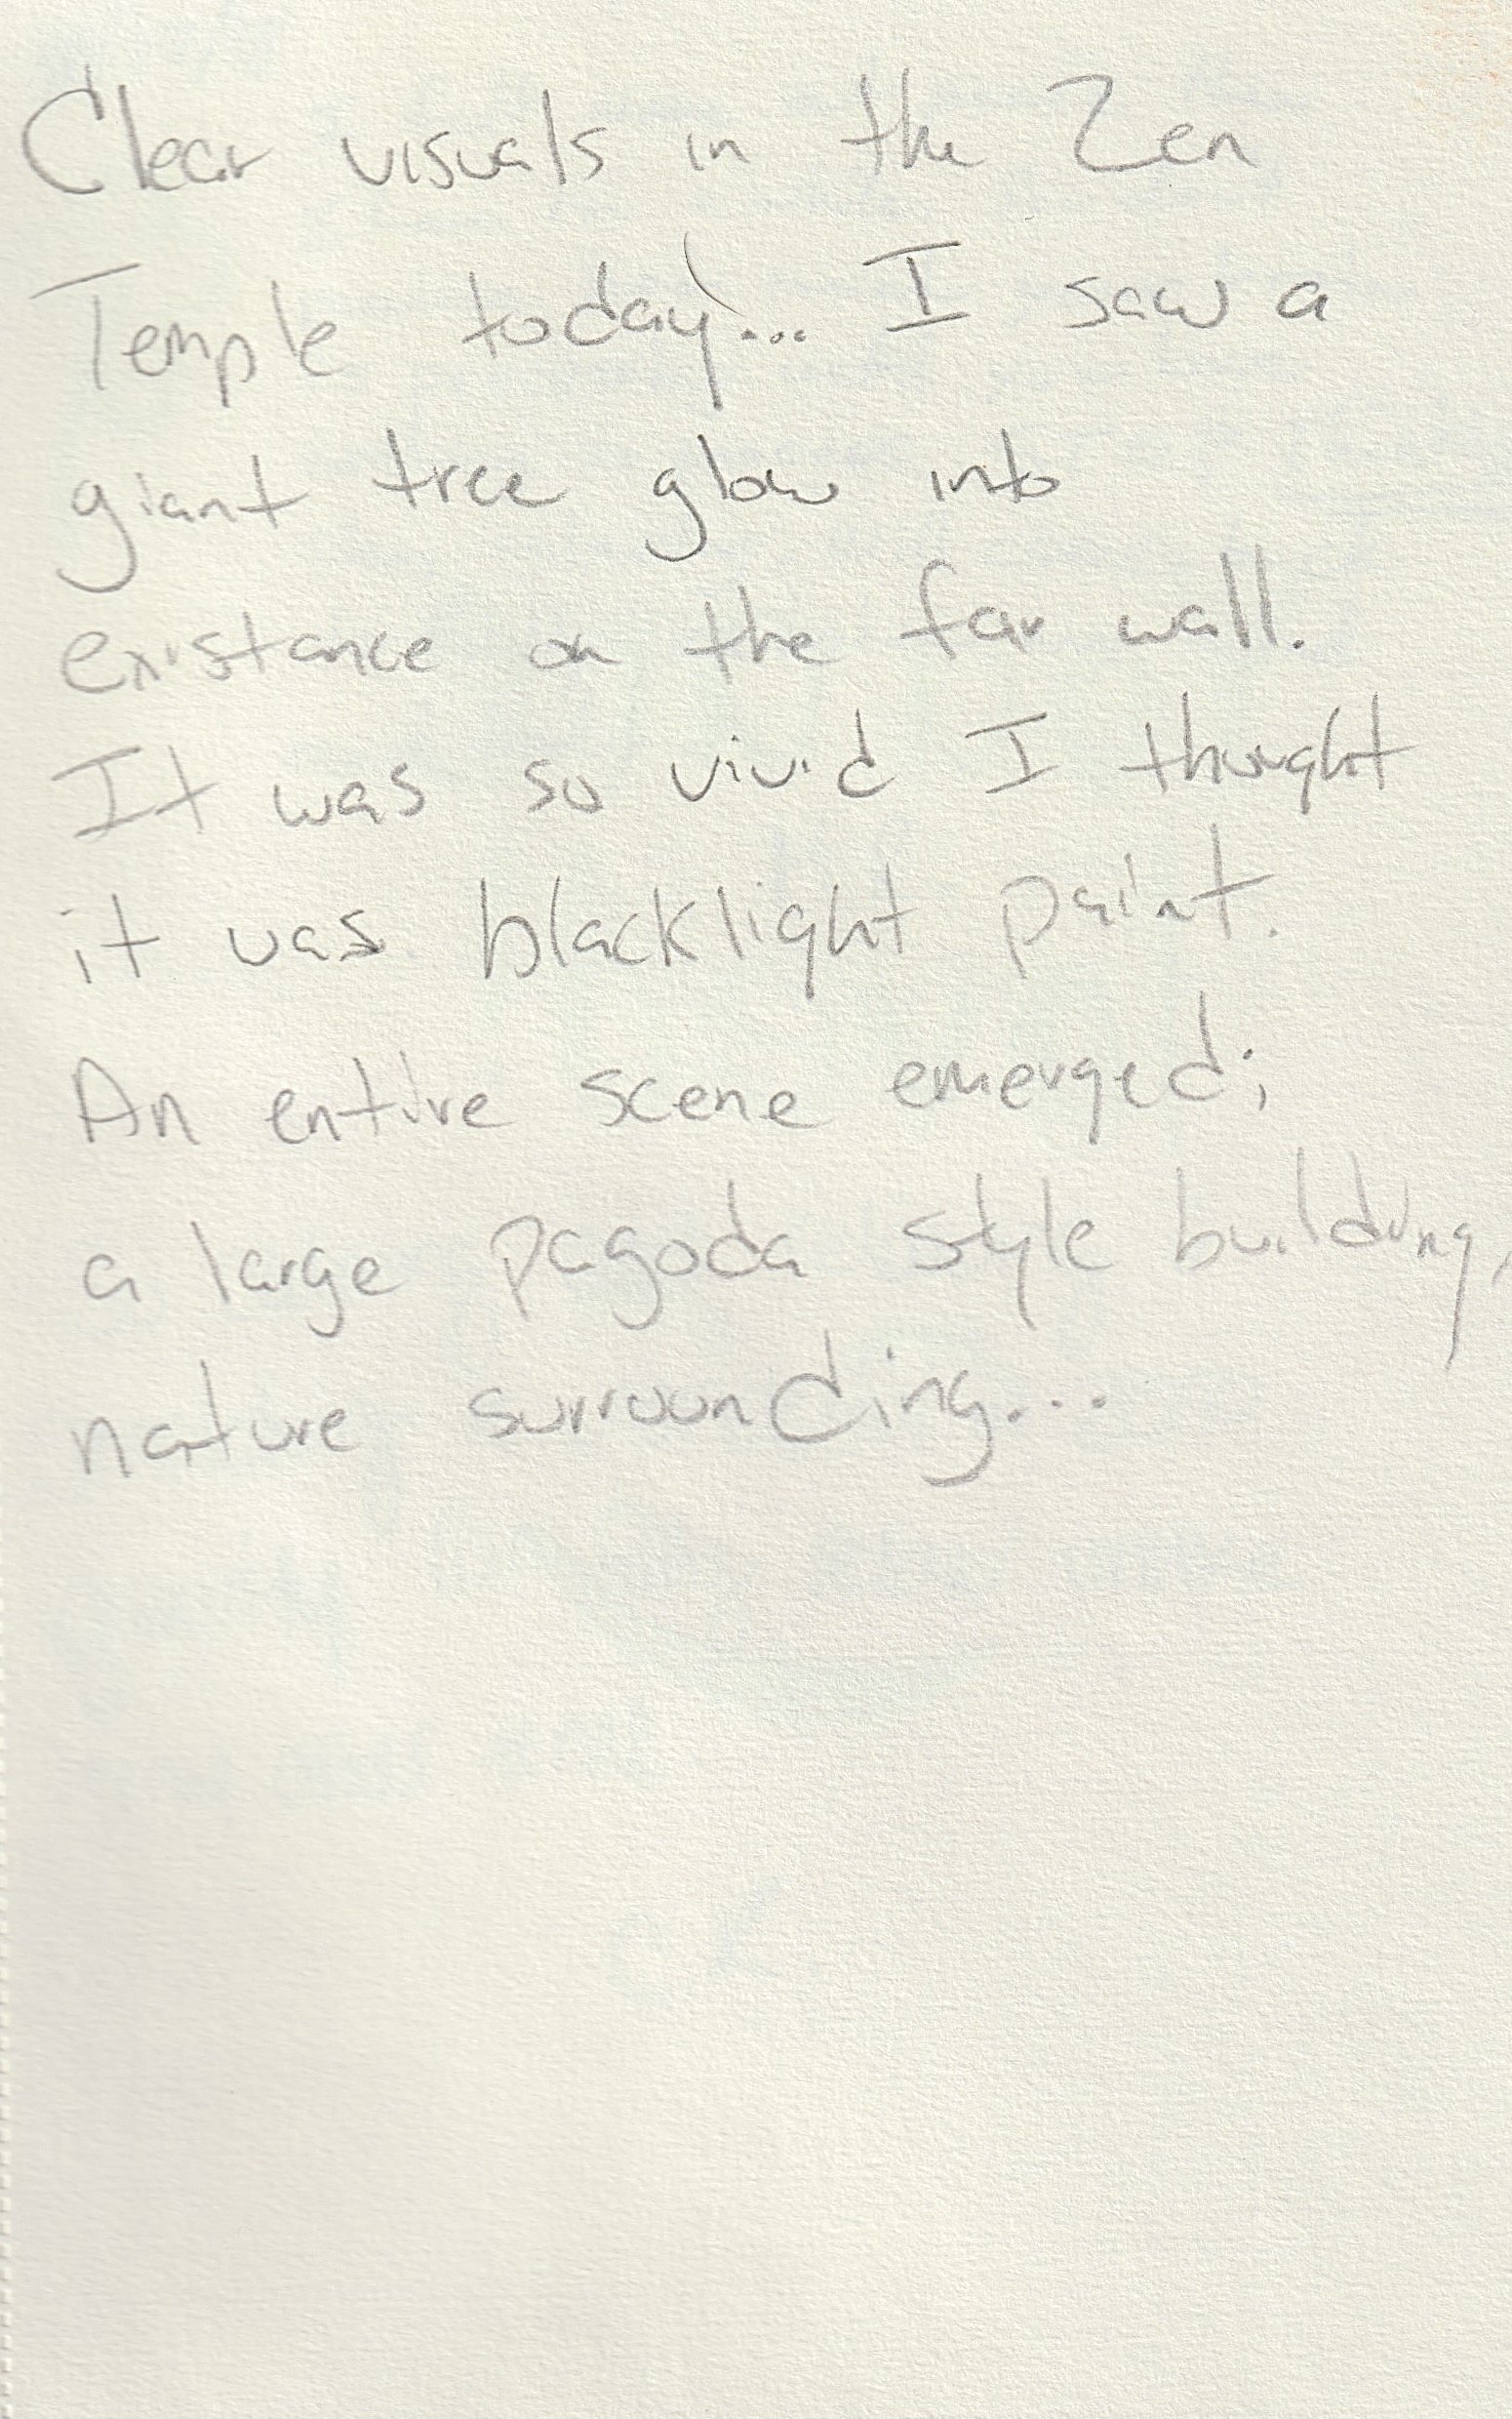 Clear visuals in the Zen
Temple today... I saw a
giant tree glow into
existance on the far wall.
It was so vivid I thought
it was blacklight paint.
An entire scene emerged;
a large pagoda style building,
nature surrounding...